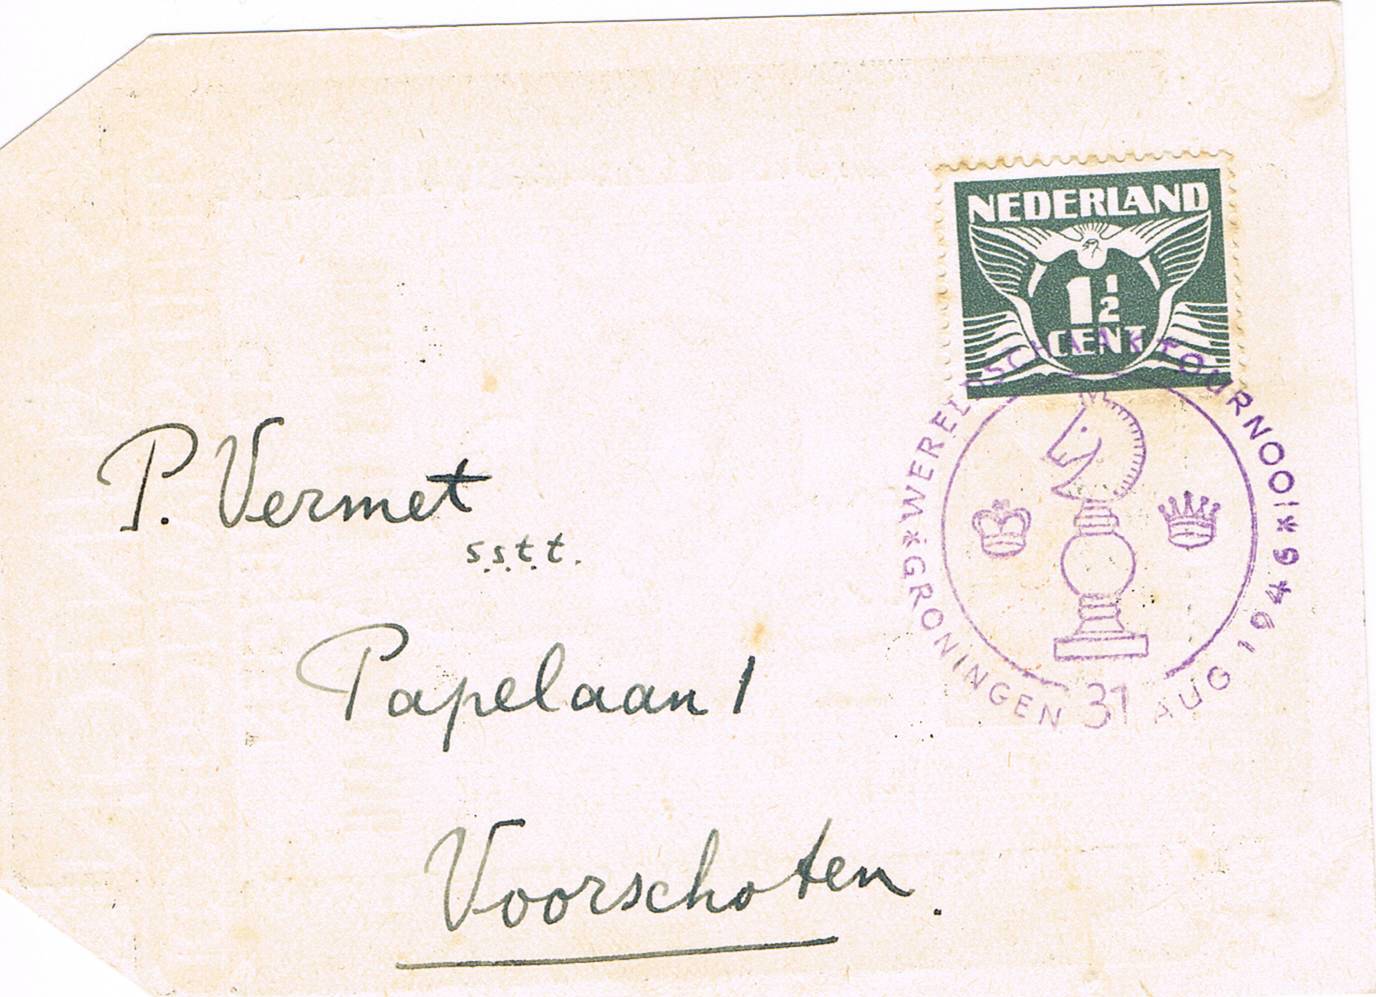 NEDERLAND
1½
CENT
*WERELDSCHAAKTOURNOOI*
GRONINGEN 31 AUG 1946
P. Vermet
s.s.t.t.
Papelaan 1
Voorschoten.